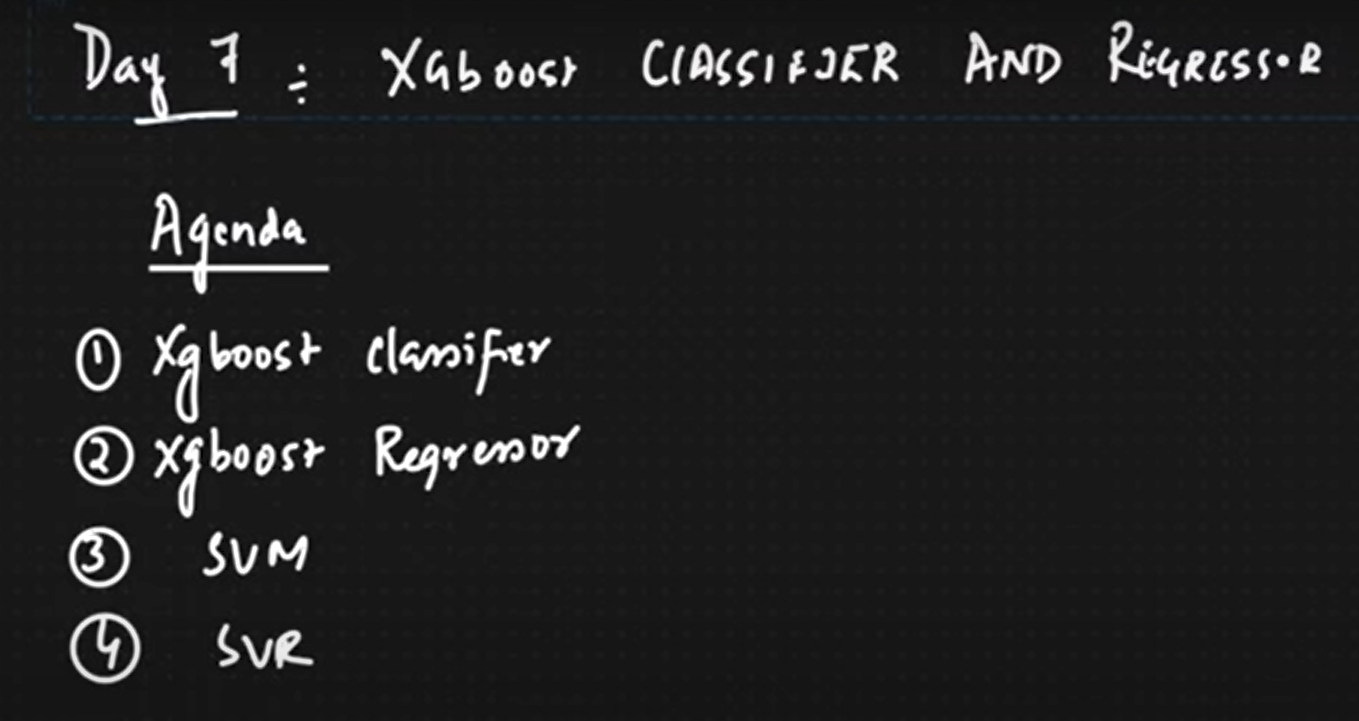 Day 7 : XGboost CLASSIFIER AND REGRESSOR
Agenda
① Xgboost classifier
② Xgboost Regressor
③ SVM
④ SVR